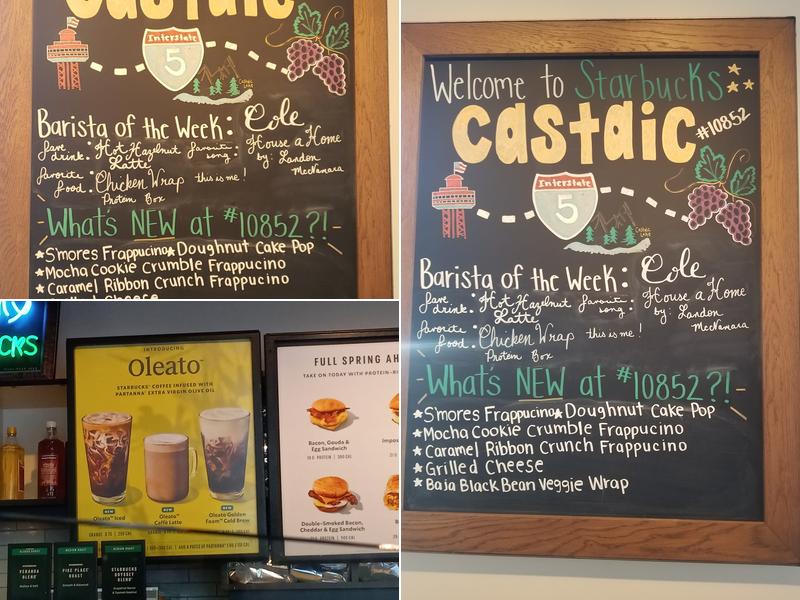 Castaic
Interstate
5
Castaic
Lake
Barista of the Week: Cole
fave drink: Hot Hazelnut Latte
favorite song: House a Home
by: Landon McNamara
favorite food: Chicken Wrap Protein Box
this is me!
What's NEW at #10852?!
★S'mores Frappucino★Doughnut Cake Pop
★Mocha Cookie Crumble Frappucino
★Caramel Ribbon Crunch Frappucino
Grilled Cheese
Welcome to Starbucks
Castaic #10852
Interstate
5
Castaic
Lake
Barista of the Week: Cole
fave drink: Hot Hazelnut Latte
favorite song: House a Home
by: Landon McNamara
favorite food: Chicken Wrap Protein Box
this is me!
What's NEW at #10852?!
★S'mores Frappucino★Doughnut Cake Pop
★Mocha Cookie Crumble Frappucino
★Caramel Ribbon Crunch Frappucino
★Grilled Cheese
★Baja Black Bean Veggie Wrap
CKS
INTRODUCING
Oleato™
STARBUCKS® COFFEE INFUSED WITH
PARTANNA® EXTRA VIRGIN OLIVE OIL
NEW
Oleato™ Iced
NEW
Oleato™
Caffè Latte
NEW
Oleato Golden
Foam™ Cold Brew
FULL SPRING AH
TAKE ON TODAY WITH PROTEIN-RI
Bacon, Gouda &
Egg Sandwich
Impos
Double-Smoked Bacon,
Cheddar & Egg Sandwich
VERANDA
BLEND®
PIKE PLACE®
ROAST
STARBUCKS
ODYSSEY
BLEND™